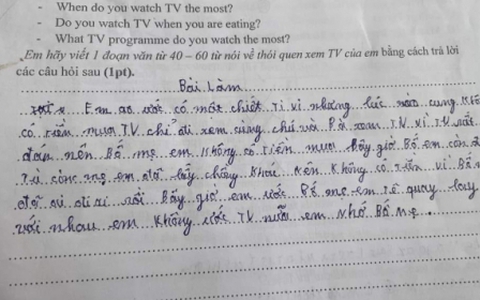 - When do you watch TV the most?
- Do you watch TV when you are eating?
- What TV programme do you watch the most?
Em hãy viết 1 đoạn văn từ 40 – 60 từ nói về thói quen xem TV của em bằng cách trả lời
các câu hỏi sau (1pt).
Bài Làm
Em ao ước có một chiếc ti vi nhưng lúc nào cũng không
có tiền mua TV chỉ đi xem cùng chú và Bà xem TV vì TV rất
đắt nên Bố mẹ em không có tiền mua bây giờ Bố em còn ở
Tù còn mẹ em đi lấy chồng khác nên không có tiền vì Bố
đi rồi Bây giờ em ước Bố mẹ em quay
với nhau em không ước TV nữa em nhớ Bố Mẹ.